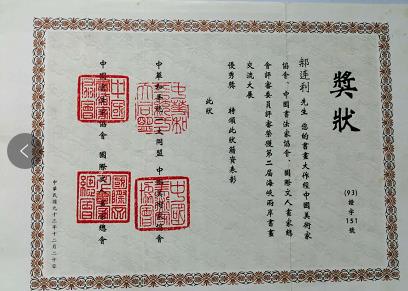 獎狀
(93)
證字
151
號
郝連利 先生 您的書畫大作經中國美術家
協會、中國書法家協會、國際文人畫家總
會評審委員評審榮獲第二屆海峽兩岸書畫
交流大展
優秀獎 特頒此狀藉資表彰
此狀
中國書法家協會 國際文人畫家總會
中華民國九十三年十二月二十日